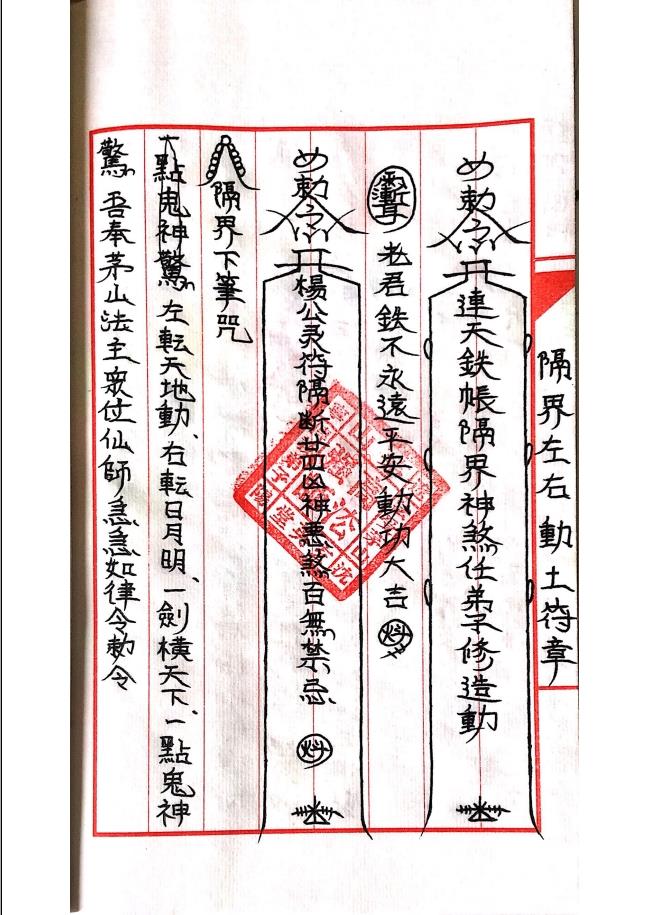 隔界左右動土符章
敕令
連天鉄帳隔界神煞任弟子修造動
老君鉄不永遠平安動功大吉
敕令
楊公灵符隔断廿四凶神悪煞百無禁忌
隔界下筆咒
點鬼神驚左転天地動、右転日月明、一劍横天下、一點鬼神
驚吾奉茅山法主衆仕仙師急急如律令勅令